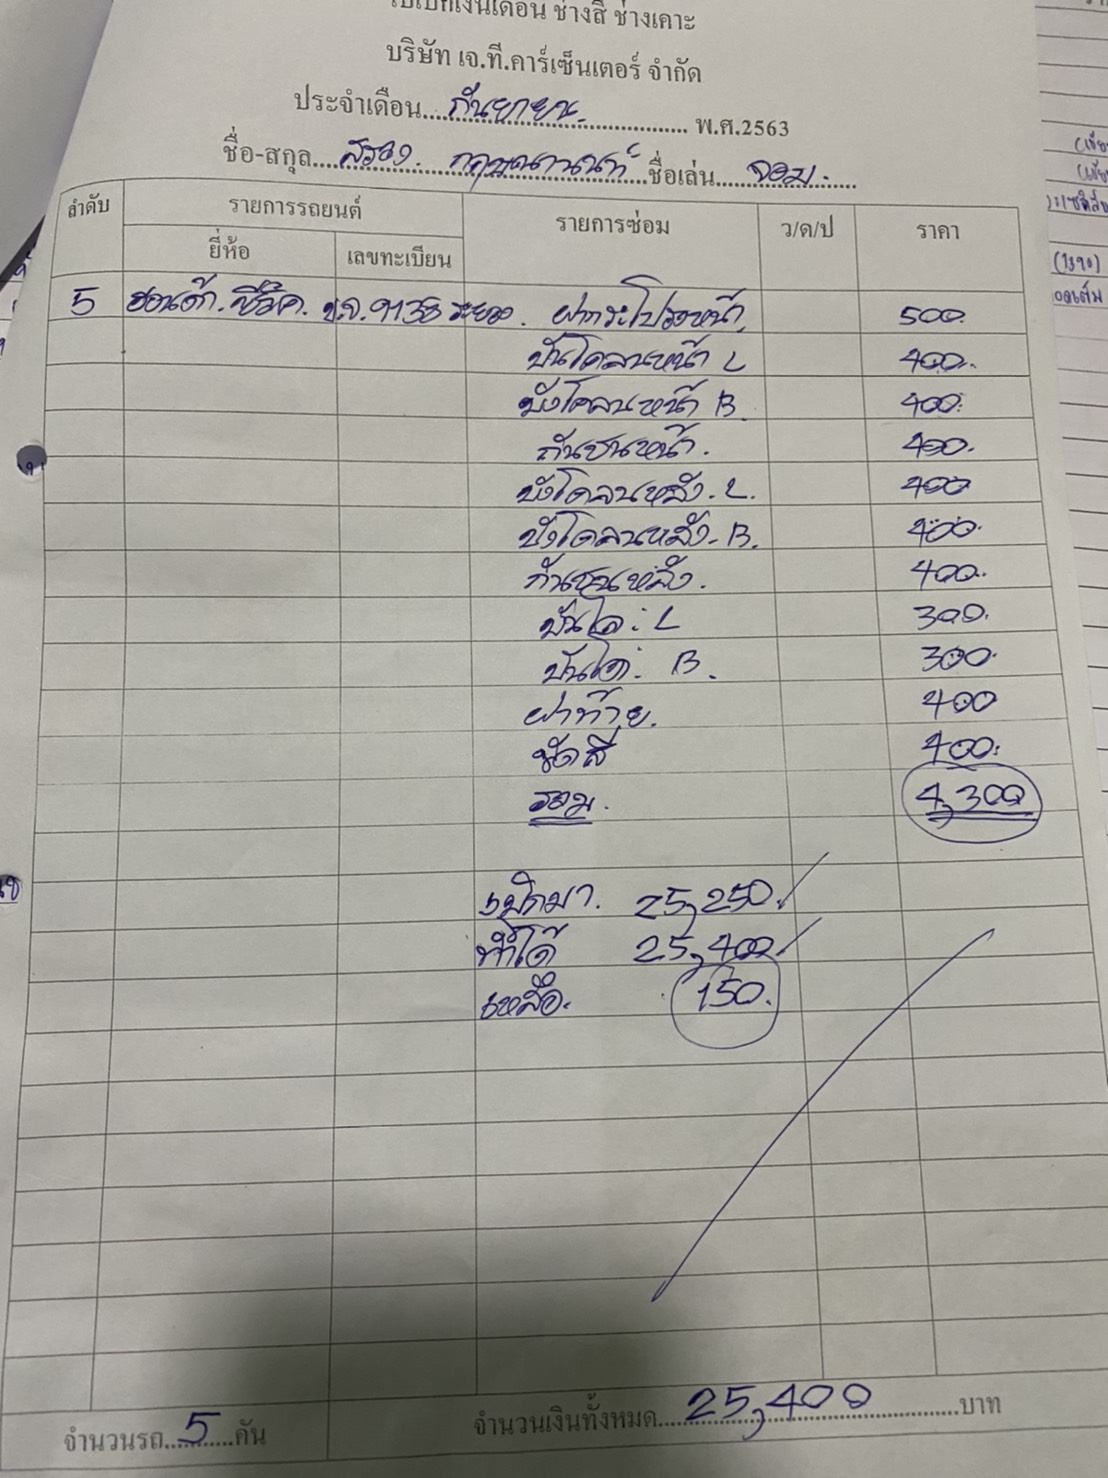 ใบเบิกเงินเดือน ช่างสี ช่างเคาะ
บริษัท เจ.ที.คาร์เซ็นเตอร์ จำกัด
ประจำเดือน....กันยายน................. พ.ศ.2563
ชื่อ-สกุล.... ....ชื่อเล่น....จอม.......
ลำดับ รายการรถยนต์ รายการซ่อม ว/ด/ป ราคา
ยี่ห้อ เลขทะเบียน
5 ฮอนด้า.ซีวิค. ข.จ.9138 ระยอง. ฝากระโปรงหน้า. 500.
บังโคลนหน้า L 400.
บังโคลนหน้า B. 400.
กันชนหน้า. 400.
บังโคลนหลัง. L. 400
บังโคลนหลัง. B. 400.
กันชนหลัง. 400.
บันได: L 300.
บันได: B. 300.
ฝาท้าย. 400
ขัดสี 400.
รวม. 4,300
เบิกมา. 25,250.
ทำได้ 25,400
เหลือ. 150.
จำนวนรถ....5....คัน จำนวนเงินทั้งหมด....25,400....บาท